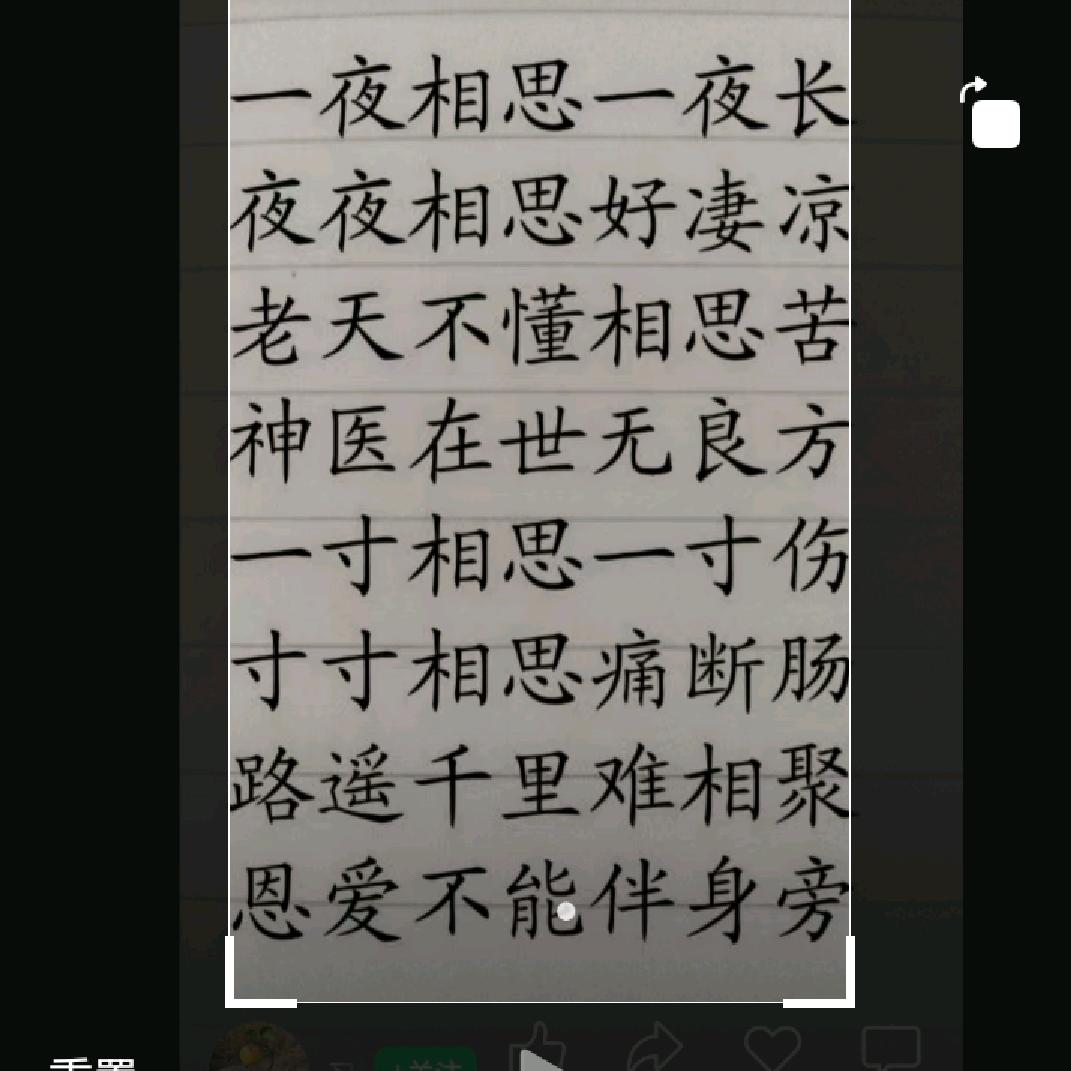 一夜相思一夜长
夜夜相思好凄凉
老天不懂相思苦
神医在世无良方
一寸相思一寸伤
寸寸相思痛断肠
路遥千里难相聚
恩爱不能伴身旁
+关注
重置